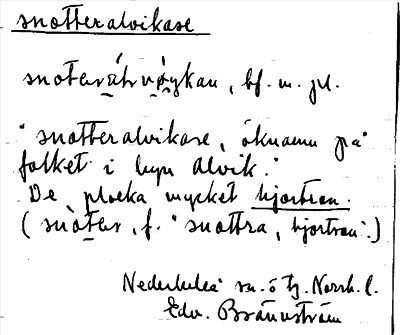 snotteralvikase
bf. m. pl.
"snotteralvikase, öknamn på
folket i byn Alvik."
De plocka mycket hjortron.
(snòter, f. "snottra, hjortron".)
Nederluleå sn. o tg. Norrb. l.
Edv. Brännström